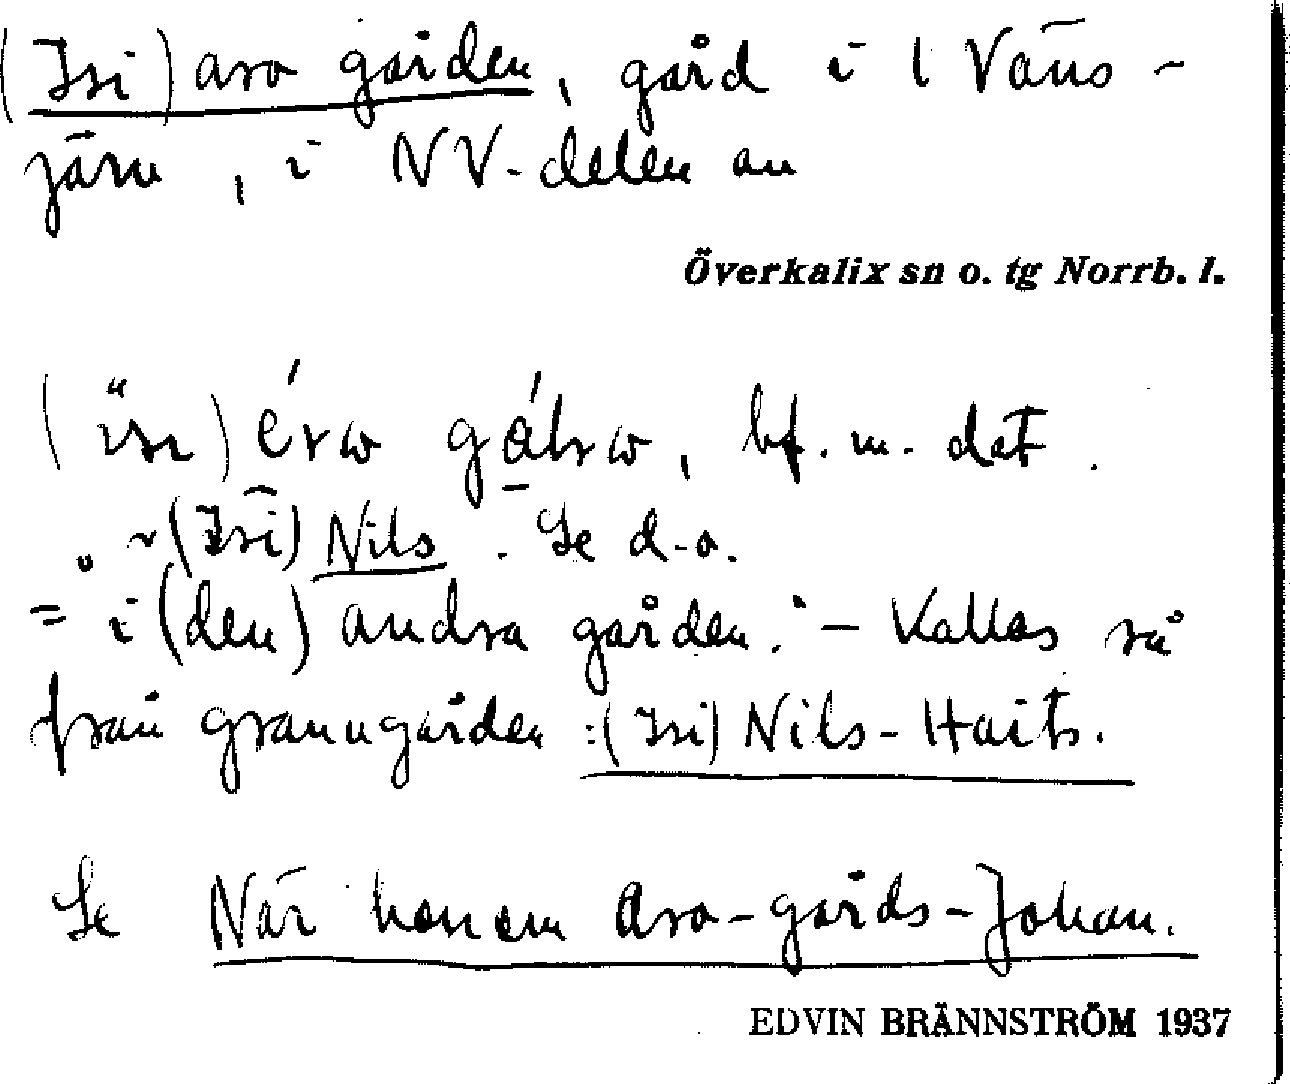 (Isi) aro gården, gård i l Väns-
järv, i NV-delen av
Överkalix sn o. tg Norrb. l.
gå, bf. m. det.
~ (Isi) Nils. Se d.o.
= i (den) andra gården. – Kallas så
från granngården: (Isi) Nils-Haits.
Se När honom Aro-gårds-Johan.
EDVIN BRÄNNSTRÖM 1937